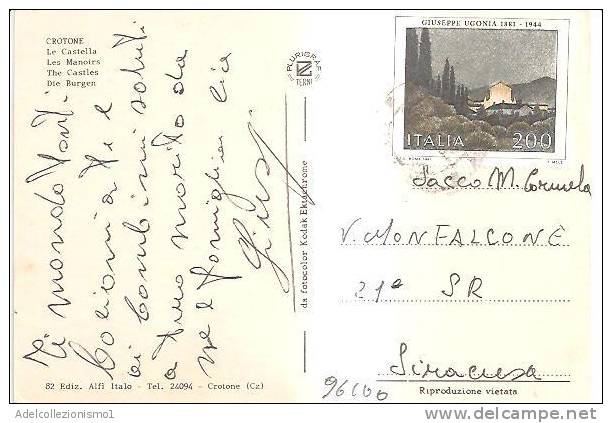 CROTONE
Le Castella
Les Manoirs
The Castles
Die Burgen
PLURIGRAF
TERNI
GIUSEPPE UGONIA 1881 - 1944
ITALIA 200
Ti mando tanti
bacioni a te e
ai bambini saluti
a tuo marito da
me e famiglia ciao
Giusi
da fotocolor Kodak Ektachrome
Sacco M. Carmela
V. MONFALCONE
21e SR
Siracusa
96100
82 Ediz. Alfi Italo - Tel. 24094 - Crotone (Cz)
Riproduzione vietata
Adelcollezionismo1
delcampe.net